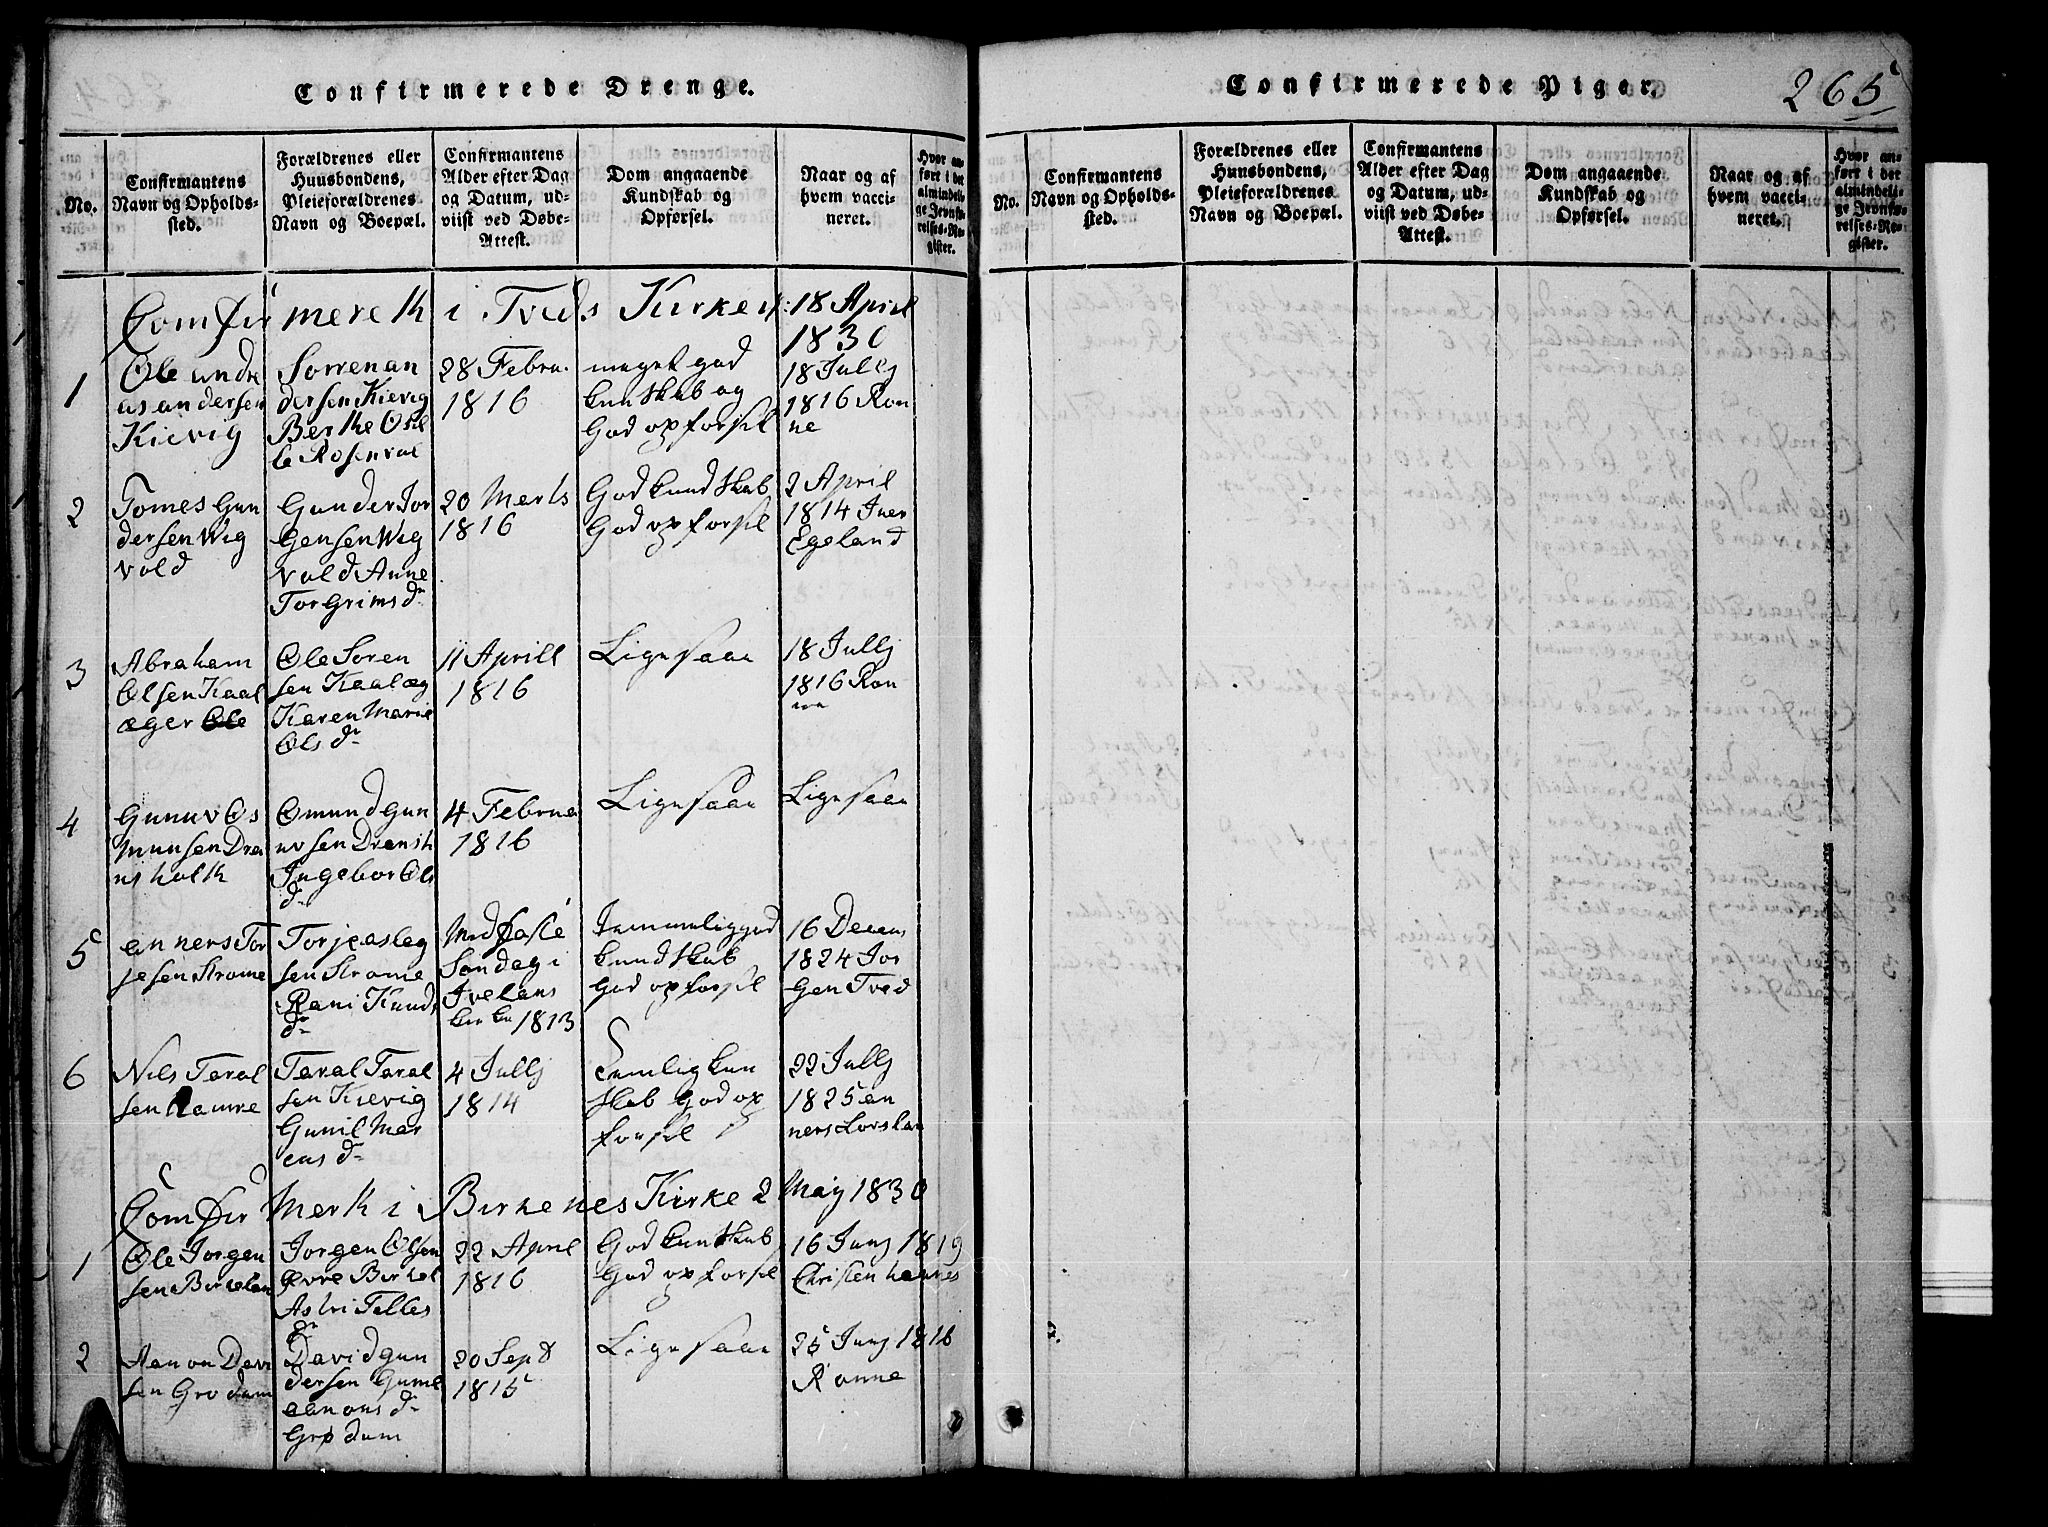 Confirmerede Drenge.
No.
Confirmantens
Navn og Opholds-
sted.
Forældrenes eller
Huusbondens,
Pleieforældrenes
Navn og Boepæl.
Confirmantens
Alder efter Dag
og Datum, ud-
viist ved Døbe-
Attest.
Dom angaaende
Kundskab og
Opførsel.
Naar og af
hvem vacci-
neret.
Hvor an-
ført i det
almindeli-
ge Jevnfø-
relses-Re-
gister.
Comfirmereth i Tveds Kirke d: 18 April
1830
1
Ole andre
us andersen
Kievig
Sørren an
dersen Kievig
Berthe Osil
le Rosenvol
28 Febru.
1816
meget god
kunskab og
God opforsel
18 Jully
1816 Ron
ne
2
Tomes Gun
dersen Wig
vold
Gunder Jor
Gensen Wig
vold Anne
Torgrims dr
20 Merts
1816
God kundskab
God opforsel
2 April
1814 Iver
Egeland
3
Abraham
Olsen Kaal
æger
Ole Soren
sen Kaalæg
Karen Marie
Ols dr
11 Aprill
1816
Ligesaa
18 Jully
1816 Ron
ne
4
Gunuv Os
munsen Dre
nsholth
Omund Gun
uvsen Drensh
Ingebor Ols
dr
4 Februa
1816
Ligesaa
Ligesaa
5
anners Tor
jesen Strome
Torje asleg
sen Strome
Rani Knuds
dr
Midfaste
Søndag i
Ivelans
kirke 1813
Temmelig god
kundskab
God opforsel
16 Decem
1824 Jor
gen Tved
6
Nils Taral
sen Ramre
Taral Taral
sen Kievig
Gunil Mar
ens dr
4 Jully
1814
Temlig kun
skab God op
forsel
22 Jully
1825 an
ners Lorslan
Comfirmerth i Birkenes Kirke 2 May 1830
1
Ole Jorgen
sen Birkelan
Jorgen Olsen
øvre Birkel
Astri Telles
dr
22 April
1816
God kunskab
God opforsel
16 Juny 1819
Christen hannes
2
Aanon Davi
sen Grødum
David Gun
dersen Gunil
aanons dr
Grødum
20 Sept
1815
Ligesaa
25 Juny 1816
Rønne
Confirmerede Piger.
265
No.
Confirmantens
Navn og Opholds-
sted.
Forældrenes eller
Huusbondens,
Pleieforældrenes
Navn og Boepæl.
Confirmantens
Alder efter Dag
og Datum, ud-
viist ved Døbe-
Attest.
Dom angaaende
Kundskab og
Opførsel.
Naar og af
hvem vacci-
neret.
Hvor an-
ført i det
almindeli-
ge Jevnfø-
relses-Re-
gister.